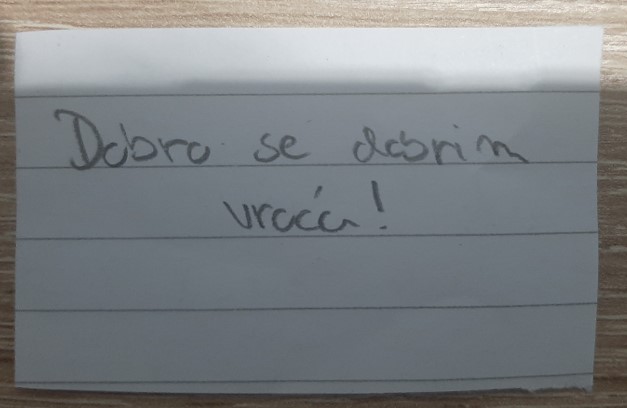 Dobro se dobrim
vraća!